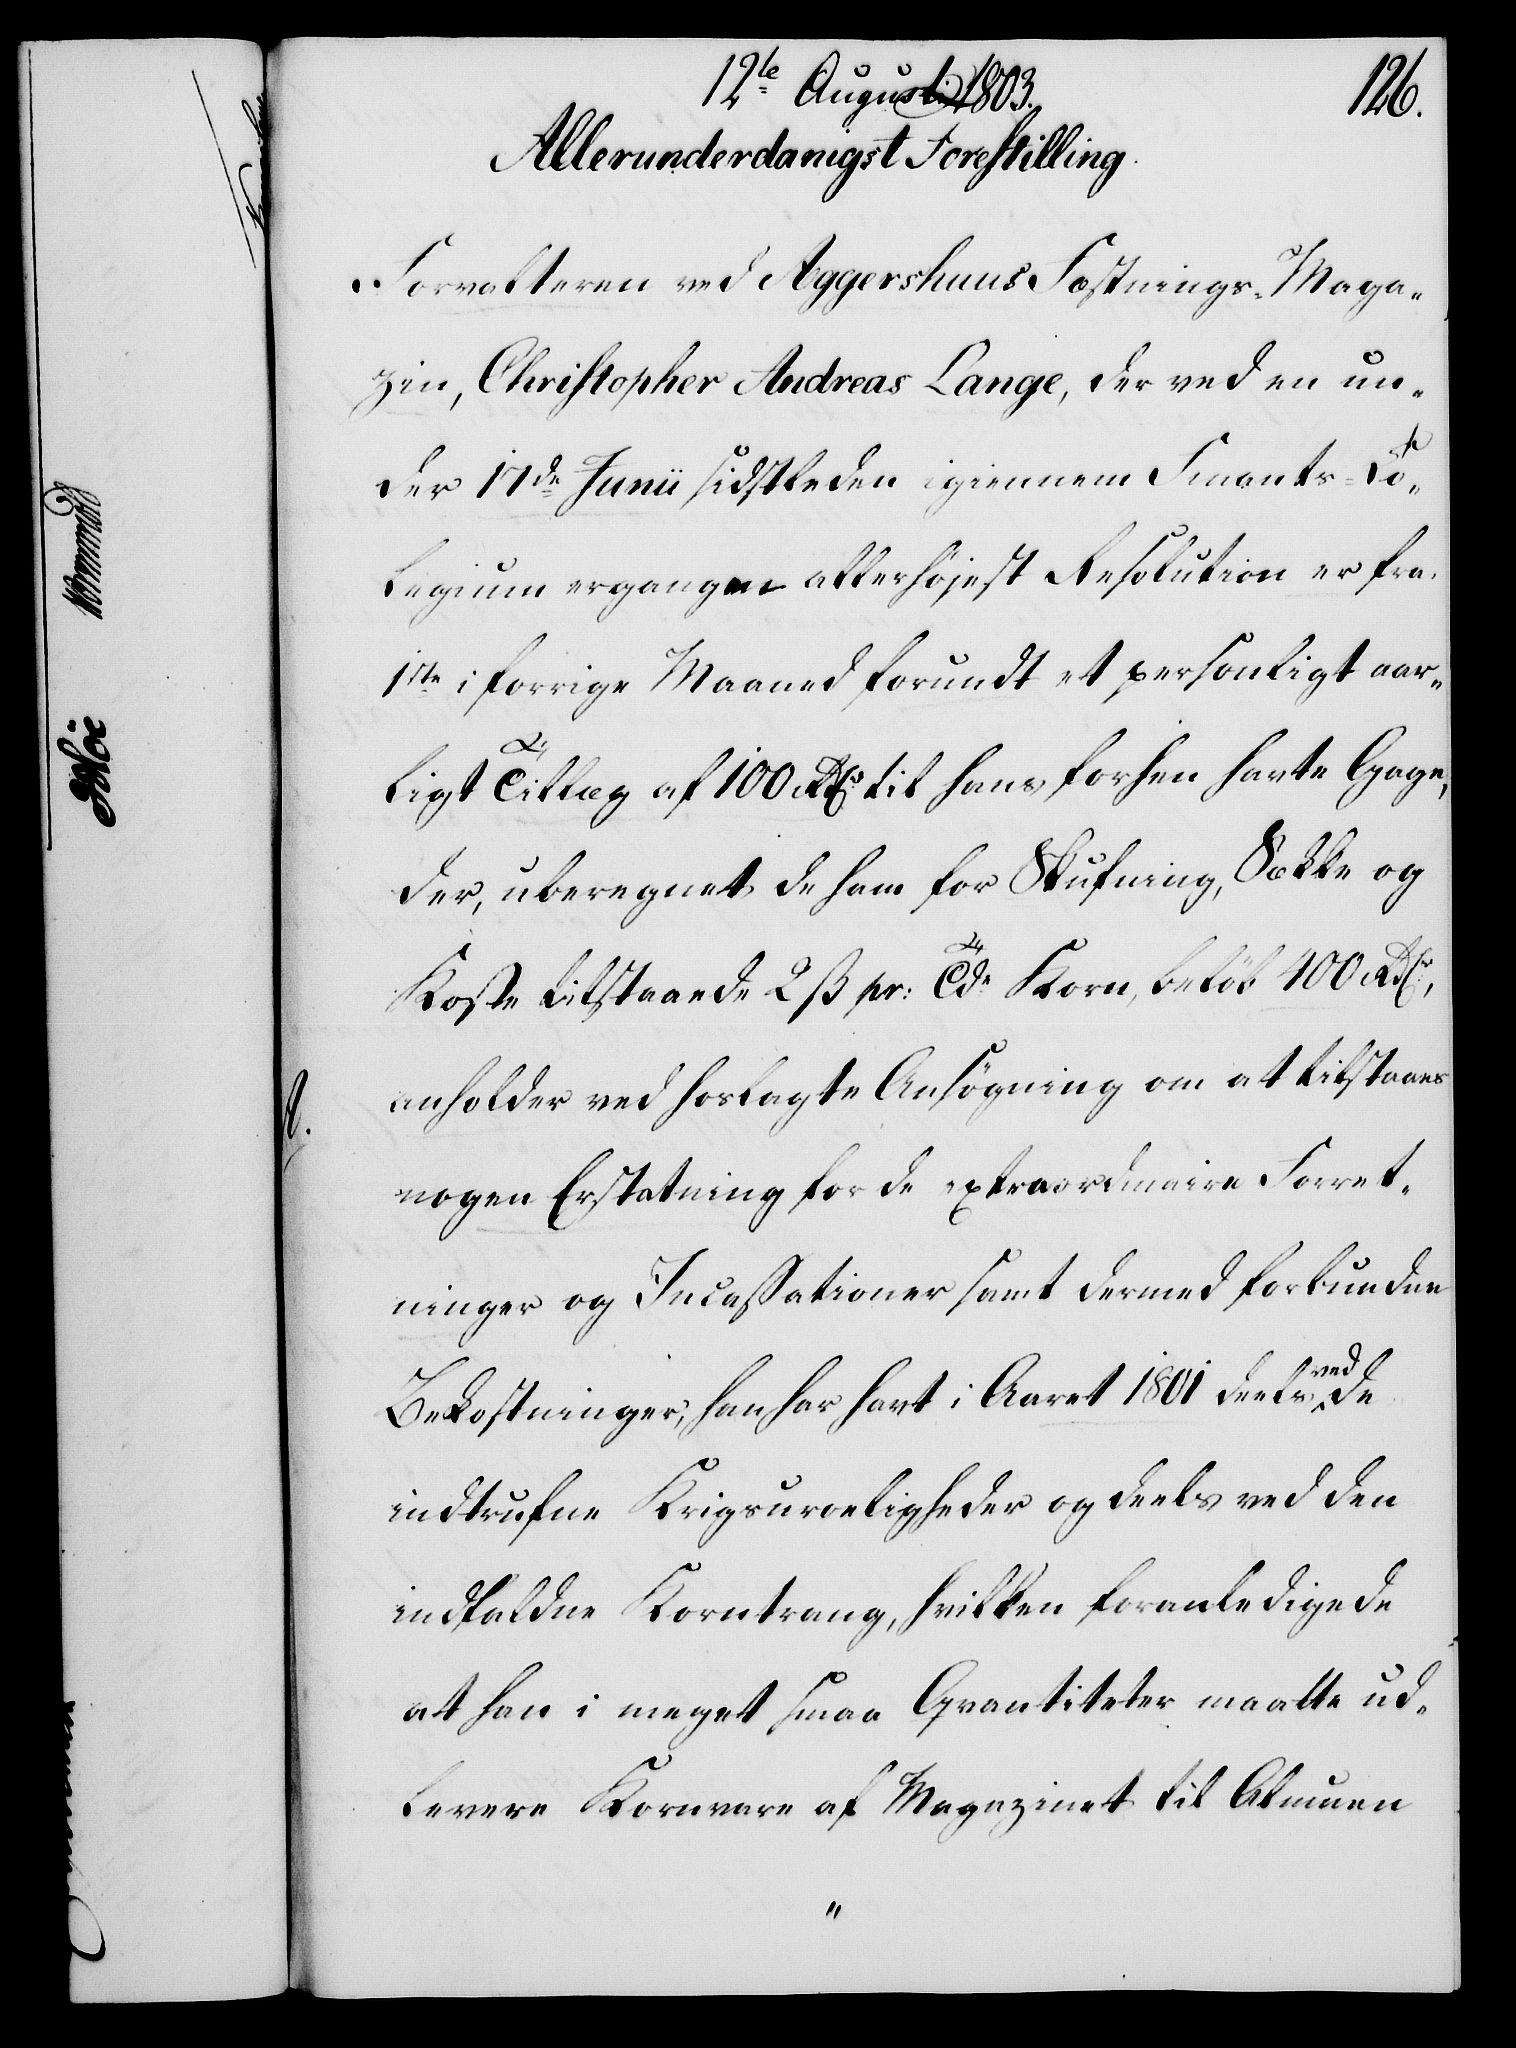 12te Augusti 1803.
126.
Allerunderdanigst Forestilling.
Forvalteren ved Aggershuus Fæstnings-Maga-
zin, Christopher Andreas Lange, der ved en un-
der 17de Junii sidstleden igiennem Finants-Co-
legium ergangen allerhøjest Resolution er fra
1ste i forrige Maaned forundt et personligt aar-
ligt Tillæg af 100 Rd til hans forhen havte Gage,
der, uberegnet de ham for Skufning, Sække og
Koste tilstaaede 2 ß pr: Tde Korn, beløb 400 Rd,
anholder ved hoslagte Ansøgning om at tilstaaes
nogen Erstatning for de extraordinaire Forret-
ninger og Incassationer samt dermed forbundne
Bekostninger, han har havt i Aaret 1801 deels ved de
indtrufne Krigsuroeligheder og deels ved den
indfaldne Korntrang, hvilken foranledigede
at han i meget smaa Qvantiteter maatte ud-
levere Kornvare af Magazinet til Almuen
"